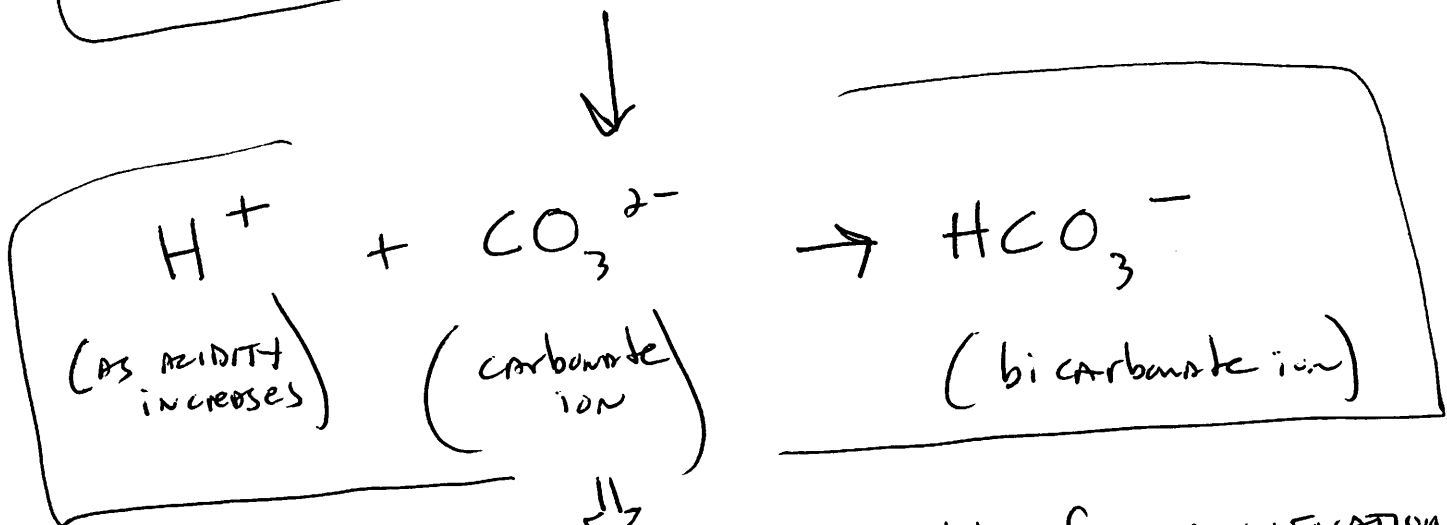 H⁺ + CO₃²⁻ → HCO₃⁻
(AS ACIDITY increases) (carbonate ion) (bicarbonate ion)